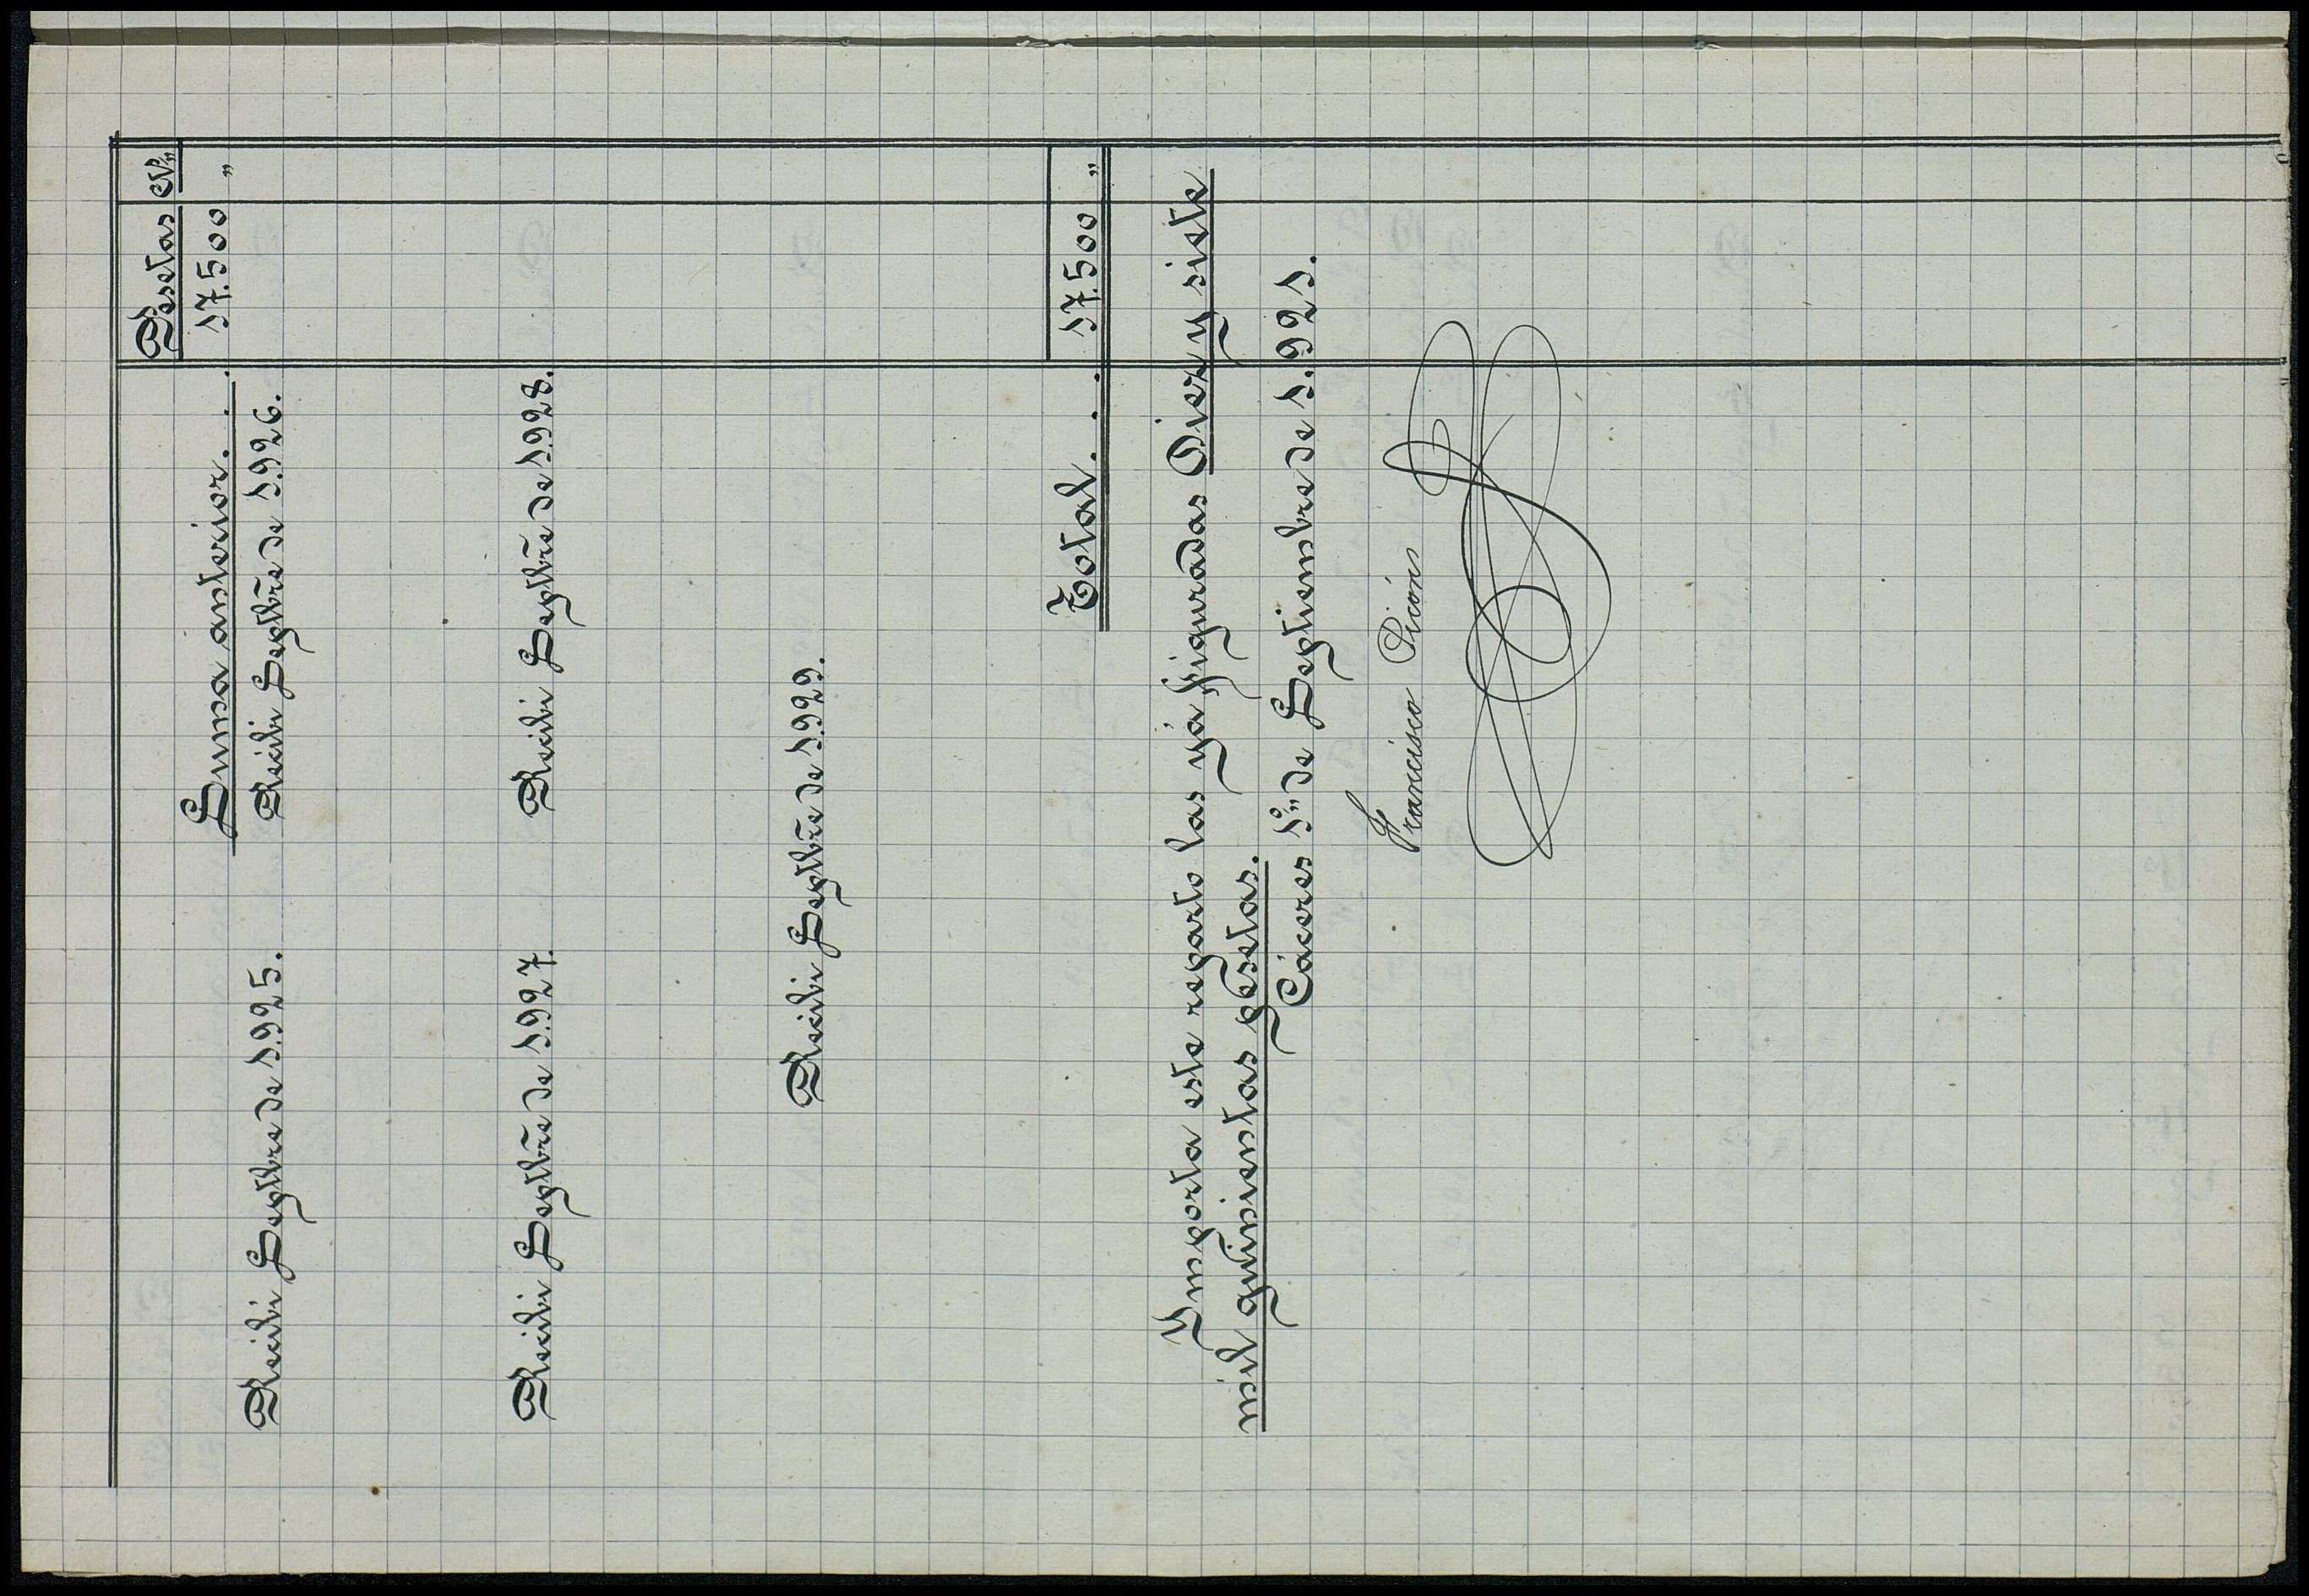 Pesetas Cts
Suma anterior. . . 17.500 "
Recibí Septbre de 1.925. Recibí Septbre de 1.926.
Recibí Septbre de 1.927. Recibí Septbre de 1.928.
Recibí Septbre de 1.929.
Total. . . 17.500 "
Ymporta este reparto las yá figuradas Diez y siete
mil quinientas pesetas.
Cáceres 1º de Septiembre de 1.921.
Francisco Picón